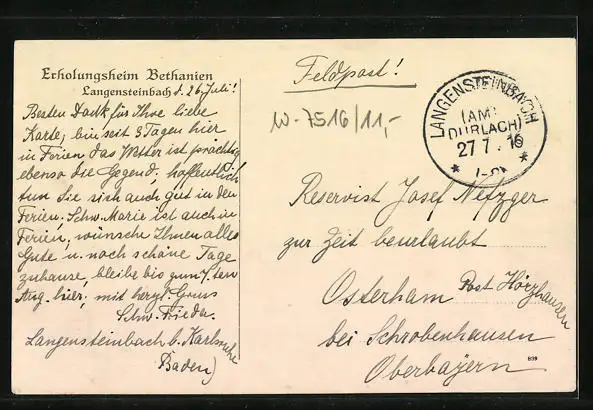 Erholungsheim Bethanien
Langensteinbach d. 26. Juli!
Besten Dank für Ihre liebe
Karte, bin seit 3 Tagen hier
in Ferien das Wetter ist prächtig
ebenso die Gegend, hoffentlich
tun Sie sich auch gut in den
Ferien, Schw. Marie ist auch in
Ferien, wünsche Ihnen alles
Gute u. noch schöne Tage
zuhause, bleibe bis zum 7. ten
Aug. hier, mit herzl. Gruss
Schw. Frieda.
Langensteinbach b. Karlsruhe
Baden)
Feldpost!
W-7516/11,-
LANGENSTEINBACH
(AMT
DURLACH)
27 7. 16
Reservist Josef Netzger
zur Zeit beurlaubt
Osterham Post Hörzhausen
bei Schrobenhausen
Oberbayern
839